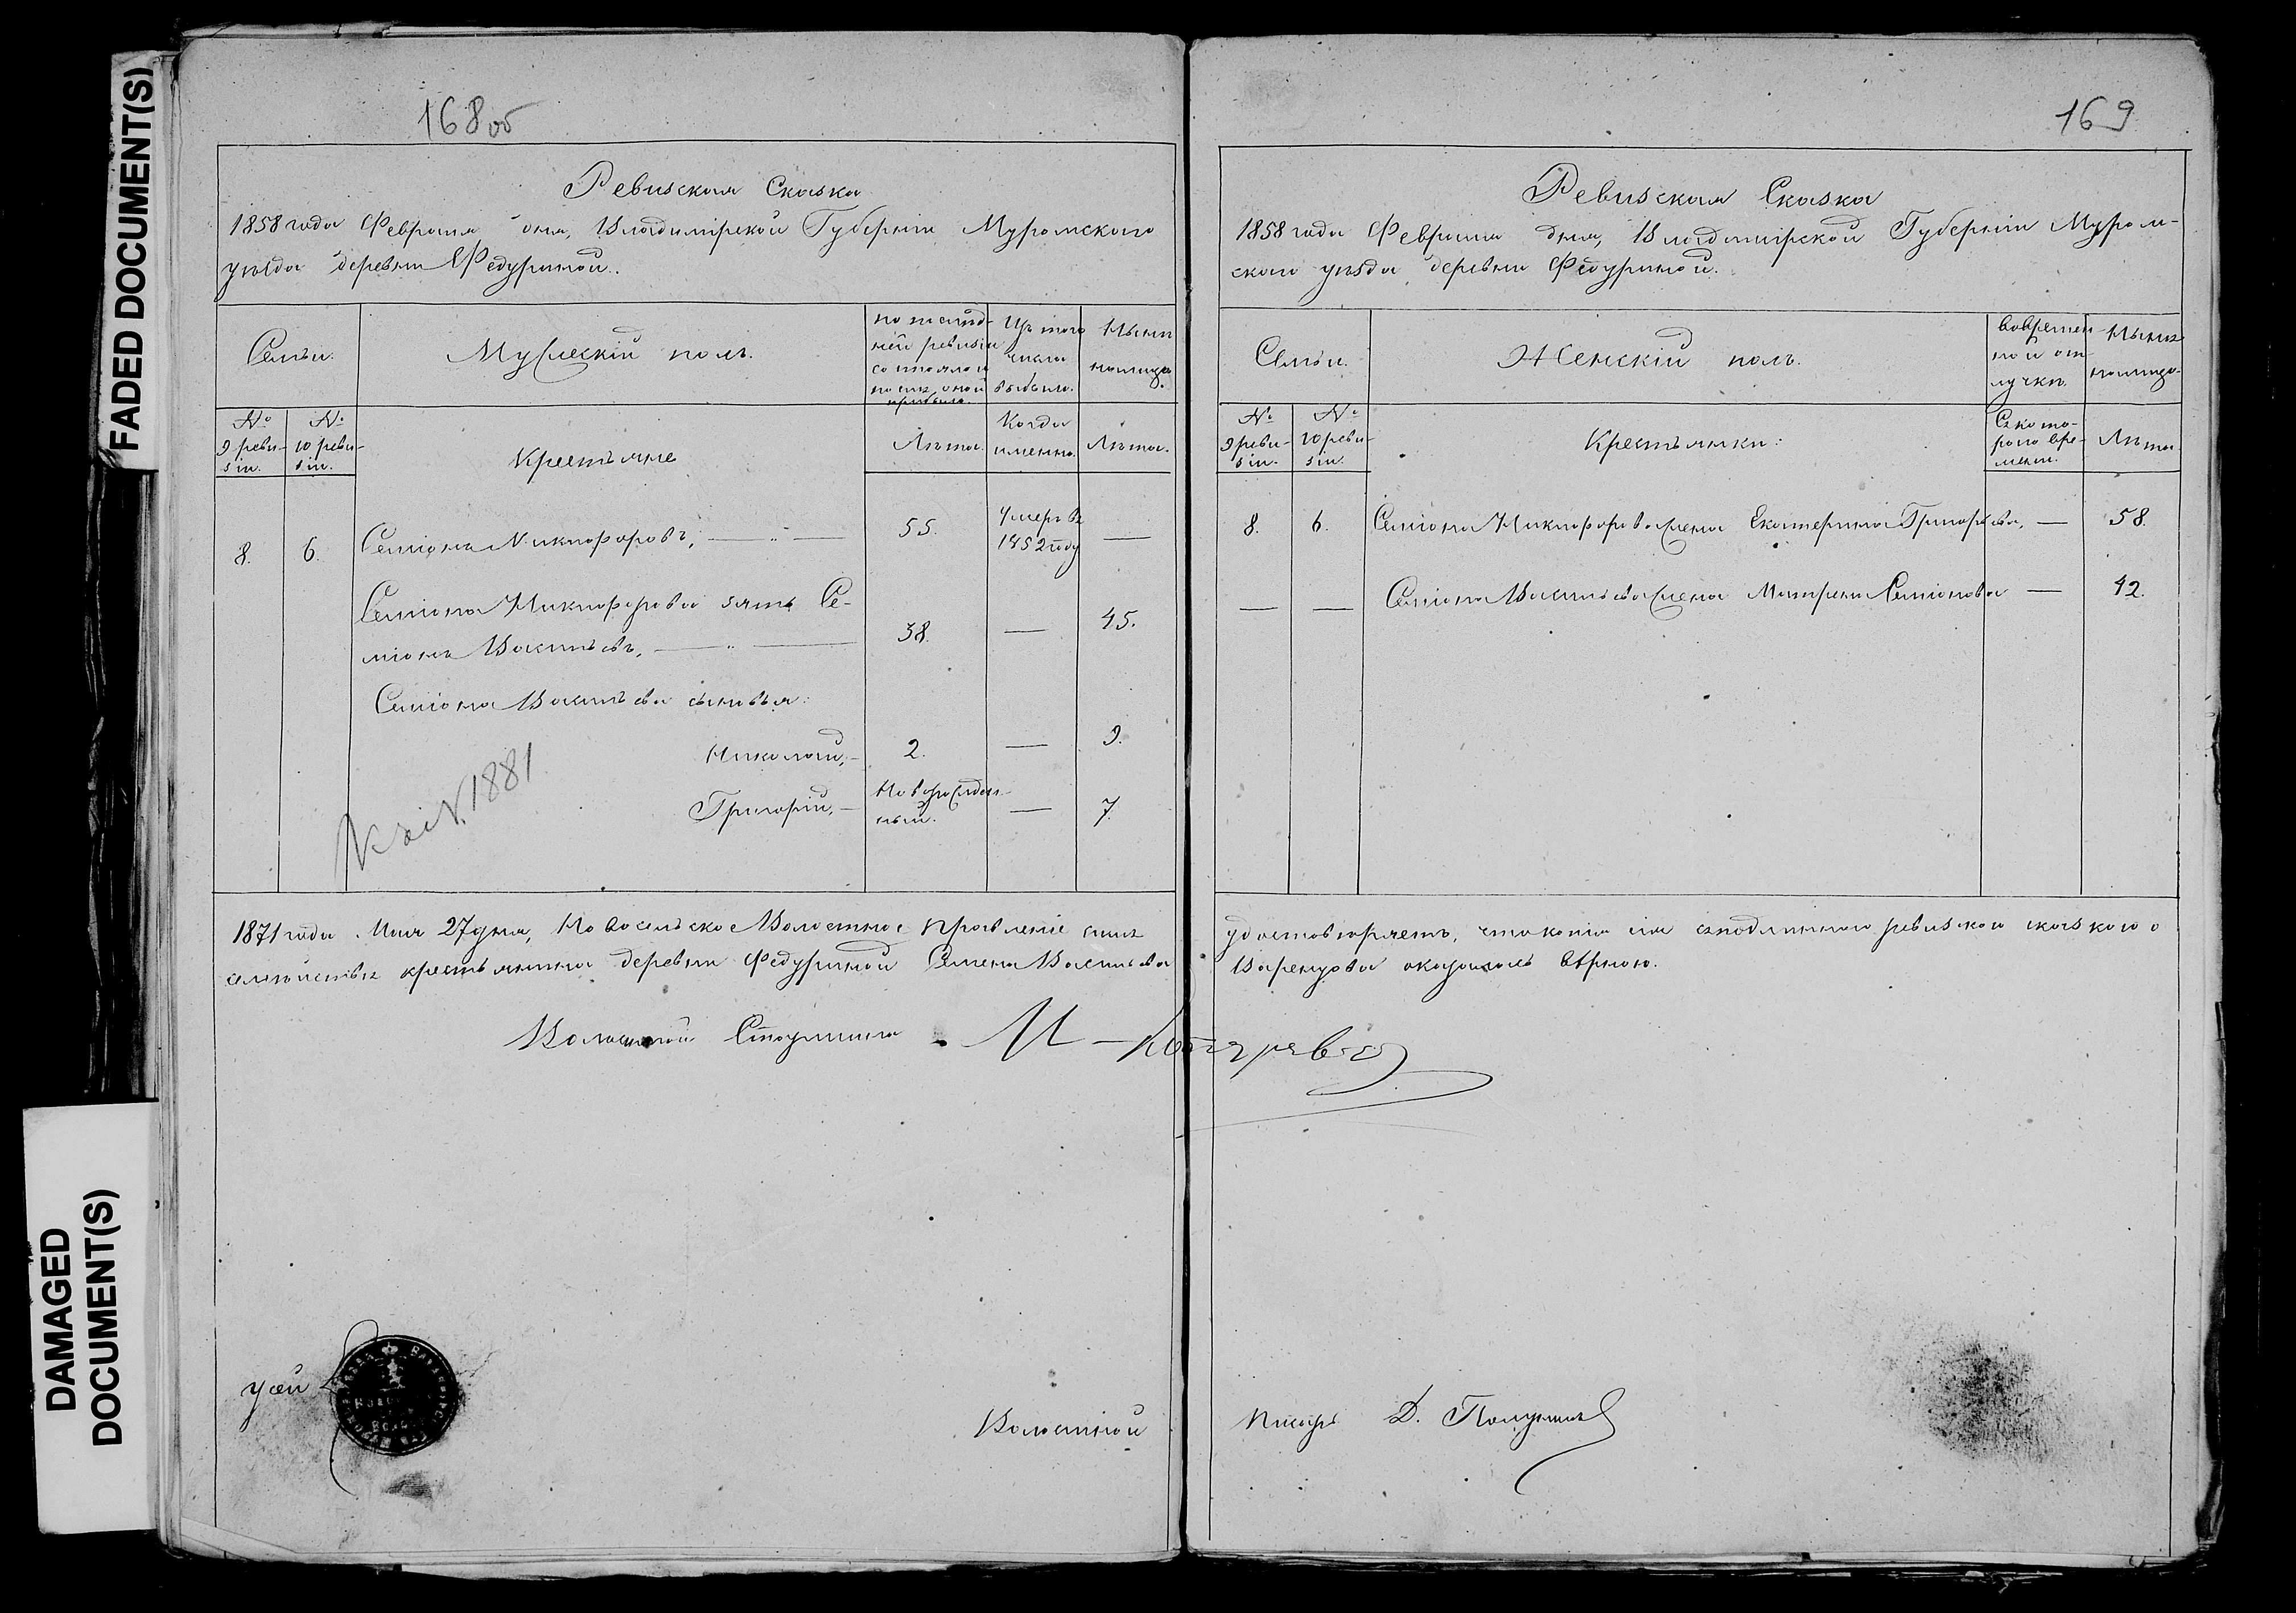 FADED DOCUMENT(S)
DAMAGED
DOCUMENT(S)
168об
Ревизская Сказка
1858 года Февраля дня, Владимірской Губерніи Муромскаго
уѣзда деревни Федуриной.
Семьи.
Мужескій полъ.
по послѣд-
ней ревизіи
состояло и
послѣ оной
прибыло.
Изъ того
числа
выбыло.
Нынѣ
налицо.
№
9 реви-
зіи.
№
10 реви-
зіи.
Крестьяне
Лѣта.
Когда
именно.
Лѣта.
8. 6. Семіонъ Никифоровъ, — „ — 55. Умеръ въ
1852 году —
Семіона Никифорова зять Се-
міонъ Васильевъ, — „ — 38. — 45.
Семіона Васильева сыновья:
Николай, — 2. — 9.
Григорій, — Новорожден-
ный. — 7.
1881
1871 года Мая 27 дня, Новосельское Волостное Правленіе симъ
семействѣ крестьянина деревни Федуриной Семена Васильева
Волостной Старшина
Волостной
169
Ревизская Сказка
1858 года Февраля дня, Владимірской Губерніи Муром-
скаго уѣзда деревни Федуриной.
Семьи.
Женскій полъ.
Во времен-
ной от-
лучкѣ.
Нынѣ
налицо.
№
9 реви-
зіи.
№
10 реви-
зіи.
Крестьянки:
Съ кото-
раго вре-
мени.
Лѣта.
8. 6. Семіона Никифорова жена Екатерина Григорьева, — 58.
— — Семіона Васильева жена Матрена Семіонова — 42.
удостовѣряетъ, что копія сія съ подлинною ревизскою сказкою о
оказалась вѣрною.
Писарь Д.